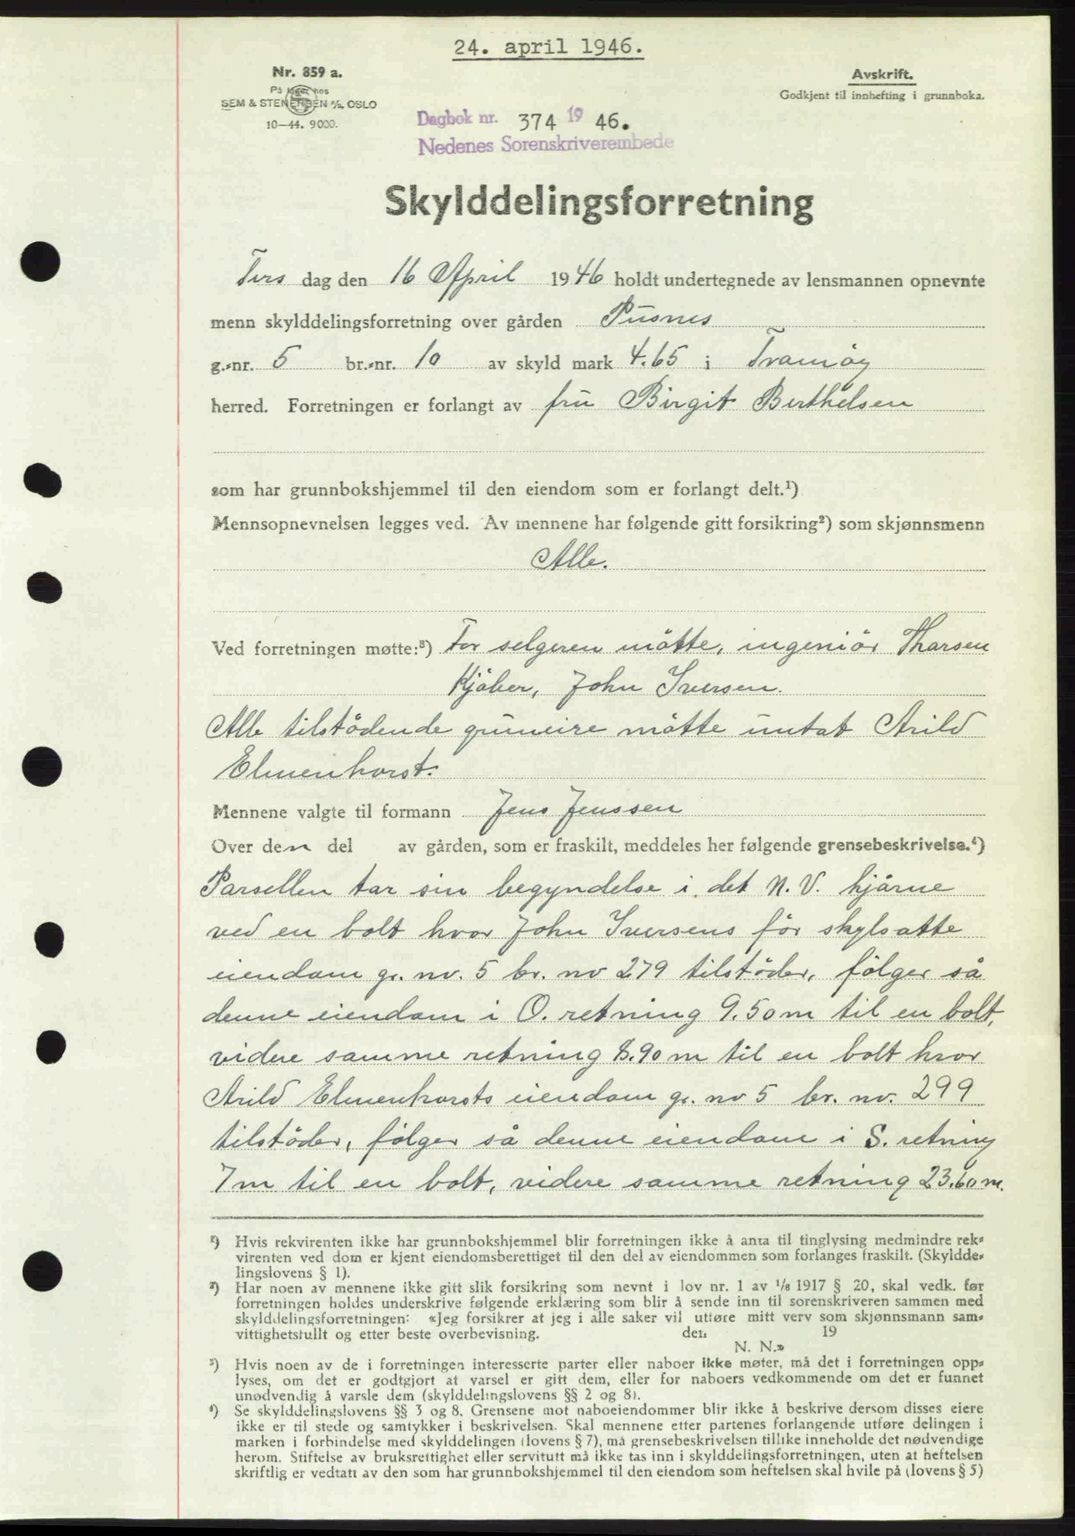 24. april 1946.
Nr. 859 a.
På lager hos
SEM & STENERSEN A/S. OSLO
10—44. 9000.
Avskrift.
Godkjent til innhefting i grunnboka.
Dagbok nr. 374 19 46.
Nedenes Sorenskriverembede
Skylddelingsforretning
Tirs dag den 16 April 1946 holdt undertegnede av lensmannen opnevnte
menn skylddelingsforretning over gården Pusnes
g.-nr. 5 br.-nr. 10 av skyld mark 4.65 i Tromøy
herred. Forretningen er forlangt av fru Birgit Berthelsen
som har grunnbokshjemmel til den eiendom som er forlangt delt.¹)
Mennsopnevnelsen legges ved. Av mennene har følgende gitt forsikring²) som skjønnsmenn
Alle.
Ved forretningen møtte:³) For selgeren møtte, ingeniør Tharsen
Kjøber, John Iversen.
Alle tilstödende gruneire møtte untat Arild
Elmenhorst.
Mennene valgte til formann Jens Jenssen
Over den del av gården, som er fraskilt, meddeles her følgende grensebeskrivelse.⁴)
Parsellen tar sin begyndelse i det N.V. hjørne
ved en bolt hvor John Iversens før skylsatte
eiendom gr. no. 5 br. no 279 tilstöder, følger så
denne eiendom i O. retning 9.50 m til en bolt,
videre samme retning 8.90 m til en bolt hvor
Arild Elmenhorsts eiendom gr. no 5 br. no. 299
tilstöder, følger så denne eiendom i S. retning
7 m til en bolt, videre samme retning 23.60 m.
¹) Hvis rekvirenten ikke har grunnbokshjemmel blir forretningen ikke å anta til tinglysing medmindre rek-
virenten ved dom er kjent eiendomsberettiget til den del av eiendommen som forlanges fraskilt. (Skyldde-
lingslovens § 1).
²) Har noen av mennene ikke gitt slik forsikring som nevnt i lov nr. 1 av 1/8 1917 § 20, skal vedk. før
forretningen holdes underskrive følgende erklæring som blir å sende inn til sorenskriveren sammen med
skylddelingsforretningen: «Jeg forsikrer at jeg i alle saker vil utføre mitt verv som skjønnsmann sam-
vittighetsfullt og etter beste overbevisning. den 19
N. N.»
³) Hvis noen av de i forretningen interesserte parter eller naboer ikke møter, må det i forretningen opp-
lyses, om det er godtgjort at varsel er gitt dem, eller for naboers vedkommende om det er funnet
unødvendig å varsle dem (skylddelingslovens §§ 2 og 8).
⁴) Se skylddelingslovens §§ 3 og 8. Grensene mot naboeiendommer blir ikke å beskrive dersom disses eiere
ikke er til stede og samtykker i beskrivelsen. Skal mennene etter partenes forlangende utføre delingen i
marken i forbindelse med skylddelingen (lovens § 7), må grensebeskrivelsen tillike inneholde det nødvendige
herom. Stiftelse av bruksrettighet eller servitutt må ikke tas inn i skylddelingsforretningen, uten at heftelsen
skriftlig er vedtatt av den som har grunnbokshjemmel til den eiendom som heftelsen skal hvile på (lovens § 5)